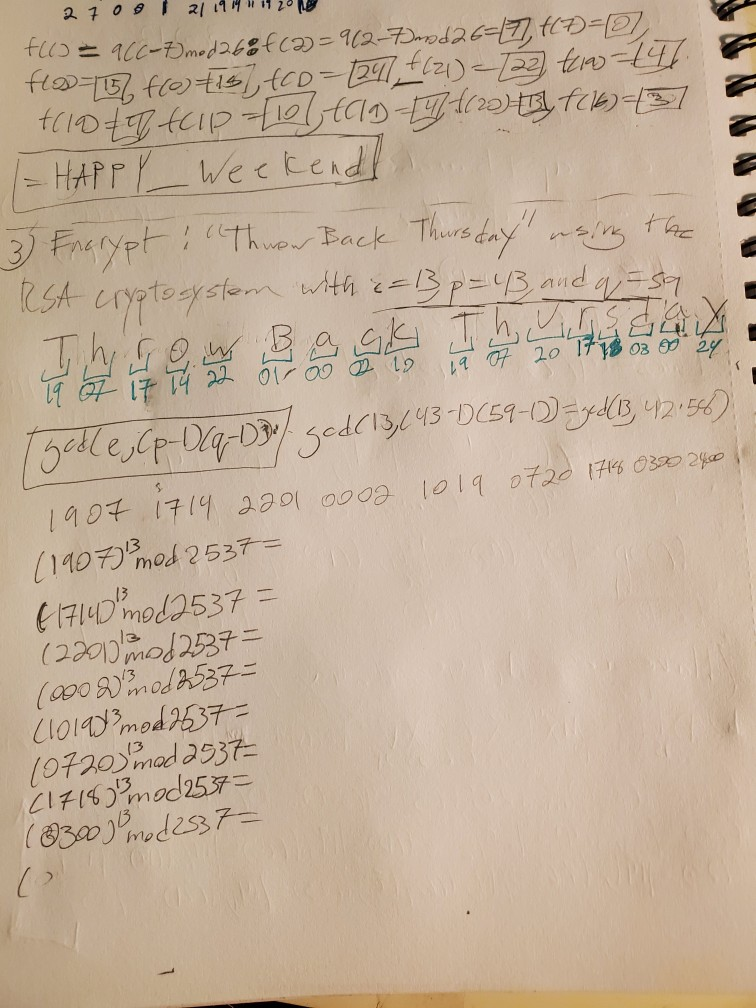 2 7 0 0 8 21 19 19 11 19 20 16
f(c) = 9(c-7)mod26: f(2) = 9(2-7)mod26=7, f(7)=0,
f(0)=15, f(0)=15, f(1) = 24, f(21) = 22, f(19)=4
f(19)=4, f(11) = 10, f(19)=4, f(20)=13, f(16)=3
= HAPPY_Weekend
3) Encrypt: "Throw Back Thursday" using the
RSA cryptosystem with e=13, p=43, and q=59
T h r o w B a c k T h u r s d a y
19 07 17 14 22 01 00 02 10 19 07 20 17 18 03 00 24
gcd(e,(p-1)(q-1)): gcd(13,(43-1)(59-1))=gcd(13, 42·58)
1907 1714 2201 0002 1019 0720 1718 0300 2400
(1907)^13 mod 2537=
(1714)^13 mod 2537=
(2201)^13 mod 2537=
(0002)^13 mod 2537=
(1019)^13 mod 2537=
(0720)^13 mod 2537=
(1718)^13 mod 2537=
(0300)^13 mod 2537=
( )